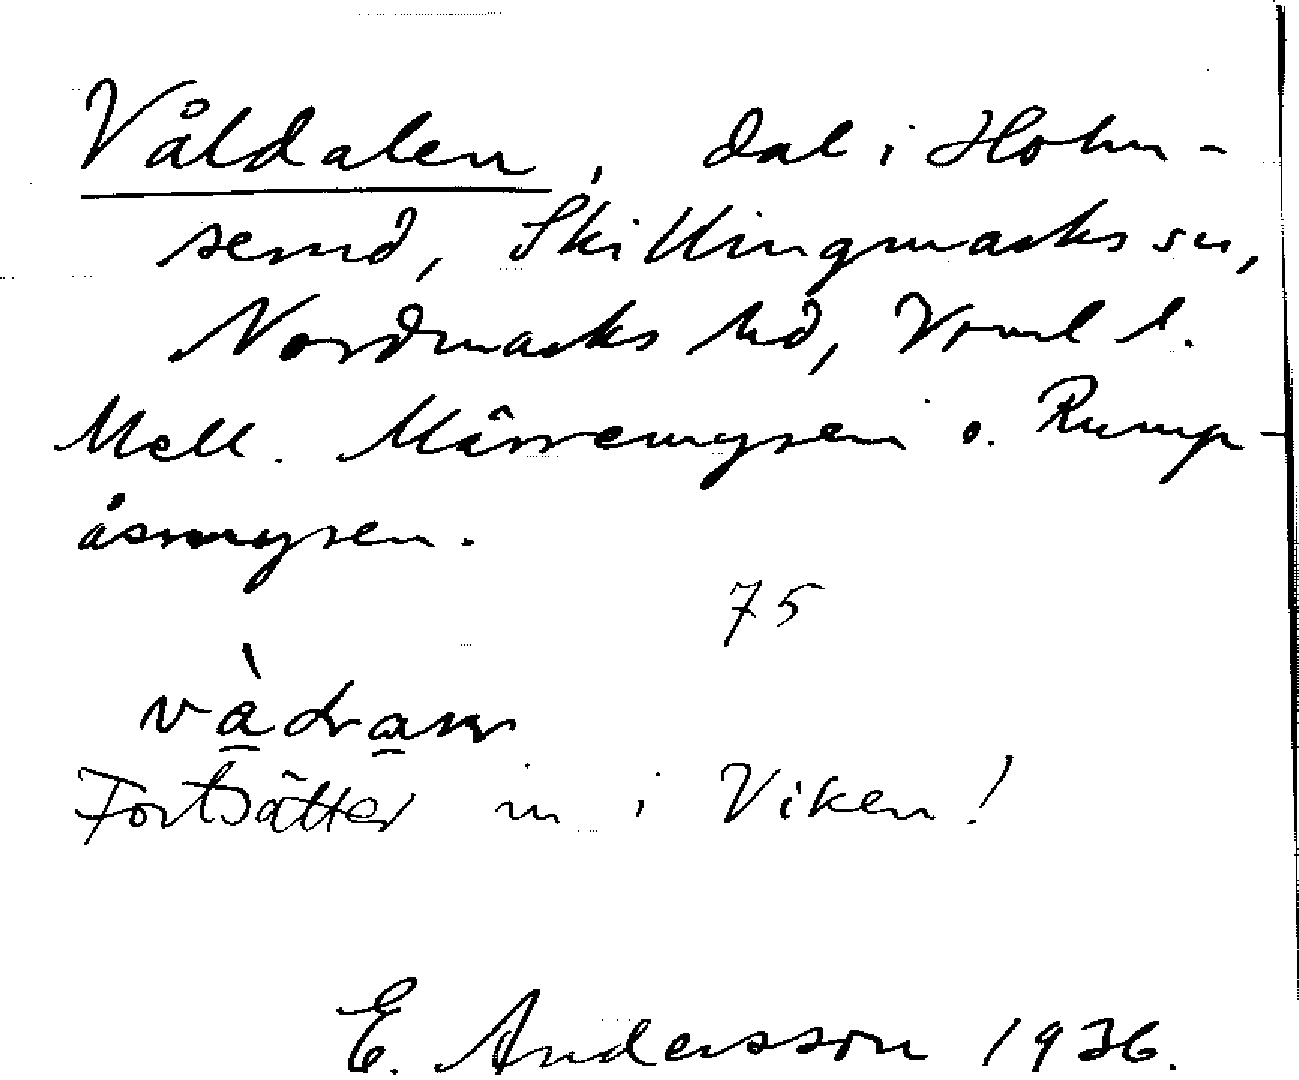 Våldalen, dal i Holm-
serud, Skillingmarks sn,
Nordmarks hd, Vrml l.
Mell. Märremyren o. Rump-
åsmyren.
75
Fortsätter in i Viken!
E. Andersson 1936.